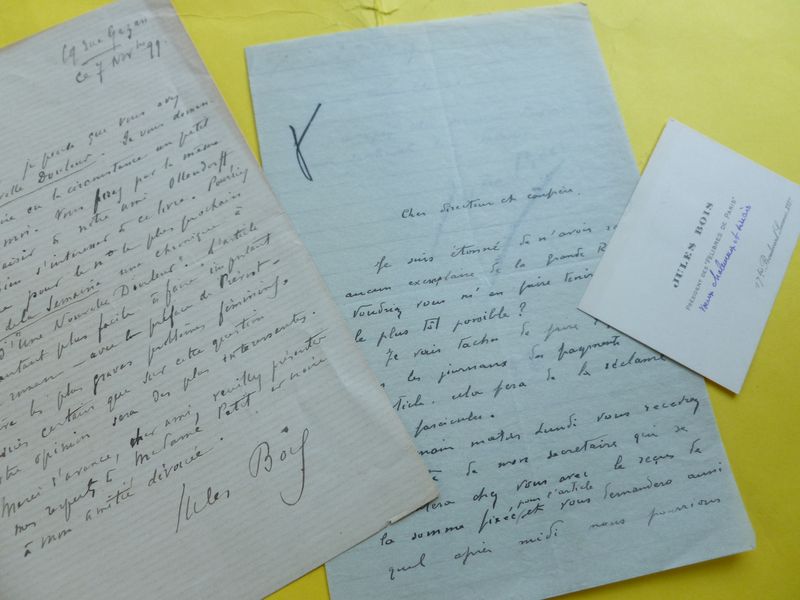 69 rue Gazan
ce 7 Nov. 99.
je pense que vous avez
velle Douleur. Je vous deman
en la circonstance un petit
moi. Vous ferez par la même
plaisir à notre ami Ollendorff
s'intéresse à ce livre. Pourriez
pour le n° le plus prochain
de la Semaine une chronique à
d'"Une Nouvelle Douleur". L'article
autant plus facile à faire important
roman — avec la préface de Prévost—
les plus graves problèmes féminins.
suis certain que sur cette question
votre opinion sera des plus intéressantes.
Merci d'avance, cher ami, veuillez présenter
mes respects à Madame Petit et croire
à mon amitié dévouée.
Jules Bois
Cher directeur et confrère.
Je suis étonné de n'avoir re
aucun exemplaire de la grande R
Voudriez vous m'en faire tenir
le plus tôt possible?
Je vais tacher de faire
les journaux des fragments
article. cela fera de la réclame
fascicules.
main matin Lundi vous recevrez
de mon secrétaire qui se
chez vous avec le reçu de
la somme fixée pour l'article et vous demandera aussi
quel après midi nous pourrions
JULES BOIS
PRÉSIDENT DES "FÉLIBRES DE PARIS"
voeux chaleureux et amicals